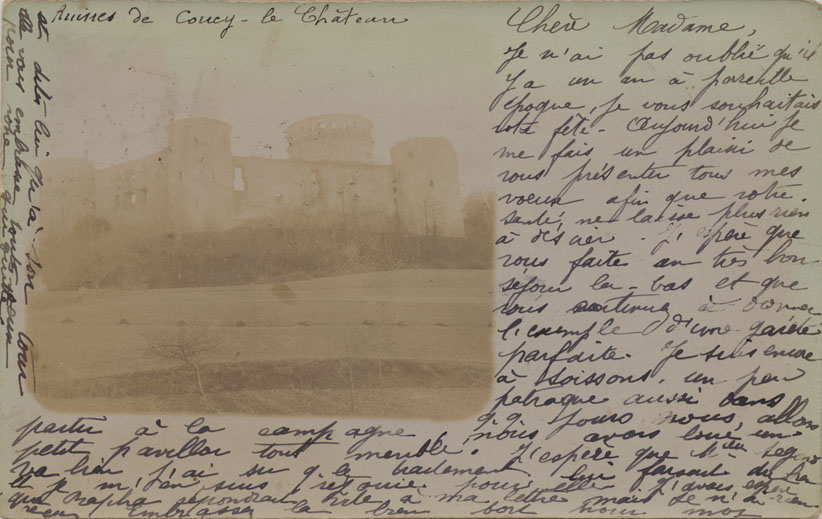 Ruines de Coucy-le Château
Chère Madame,
Je n'ai pas oublié qu'il
y a un an à pareille
époque, je vous souhaitais
votre fête. Aujourd'hui je
me fais un plaisir de
vous présenter tous mes
voeux afin que votre
santé, ne laisse plus rien
à désirer. J'espère que
vous faite un très bon
séjour la-bas et que
vous continuez à donner
l'exemple d'une gaieté
parfaite. Je suis encore
à Soissons, un peu
patraque aussi dans
q.q. jours nous, allons
partir à la campagne, nous avons loué un
petit pavillon tout meublé. J'espère que
va bien j'ai su q. le traitement lui faisait du
et je m'en suis réjouie pour elle. J'avais espéré
que Rapha répondrait vite à ma lettre mais je n'ai rien
reçu embrassez la bien fort pour moi
et dites lui qu'à son tour
de vous embrasser
pour votre